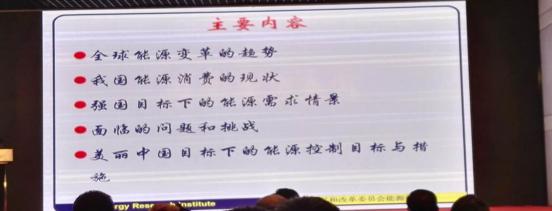 主要内容
全球能源变革的趋势
我国能源消费的现状
强国目标下的能源需求情景
面临的问题和挑战
美丽中国目标下的能源控制目标与措
施
ergy Research Institute
和改革委员会能源